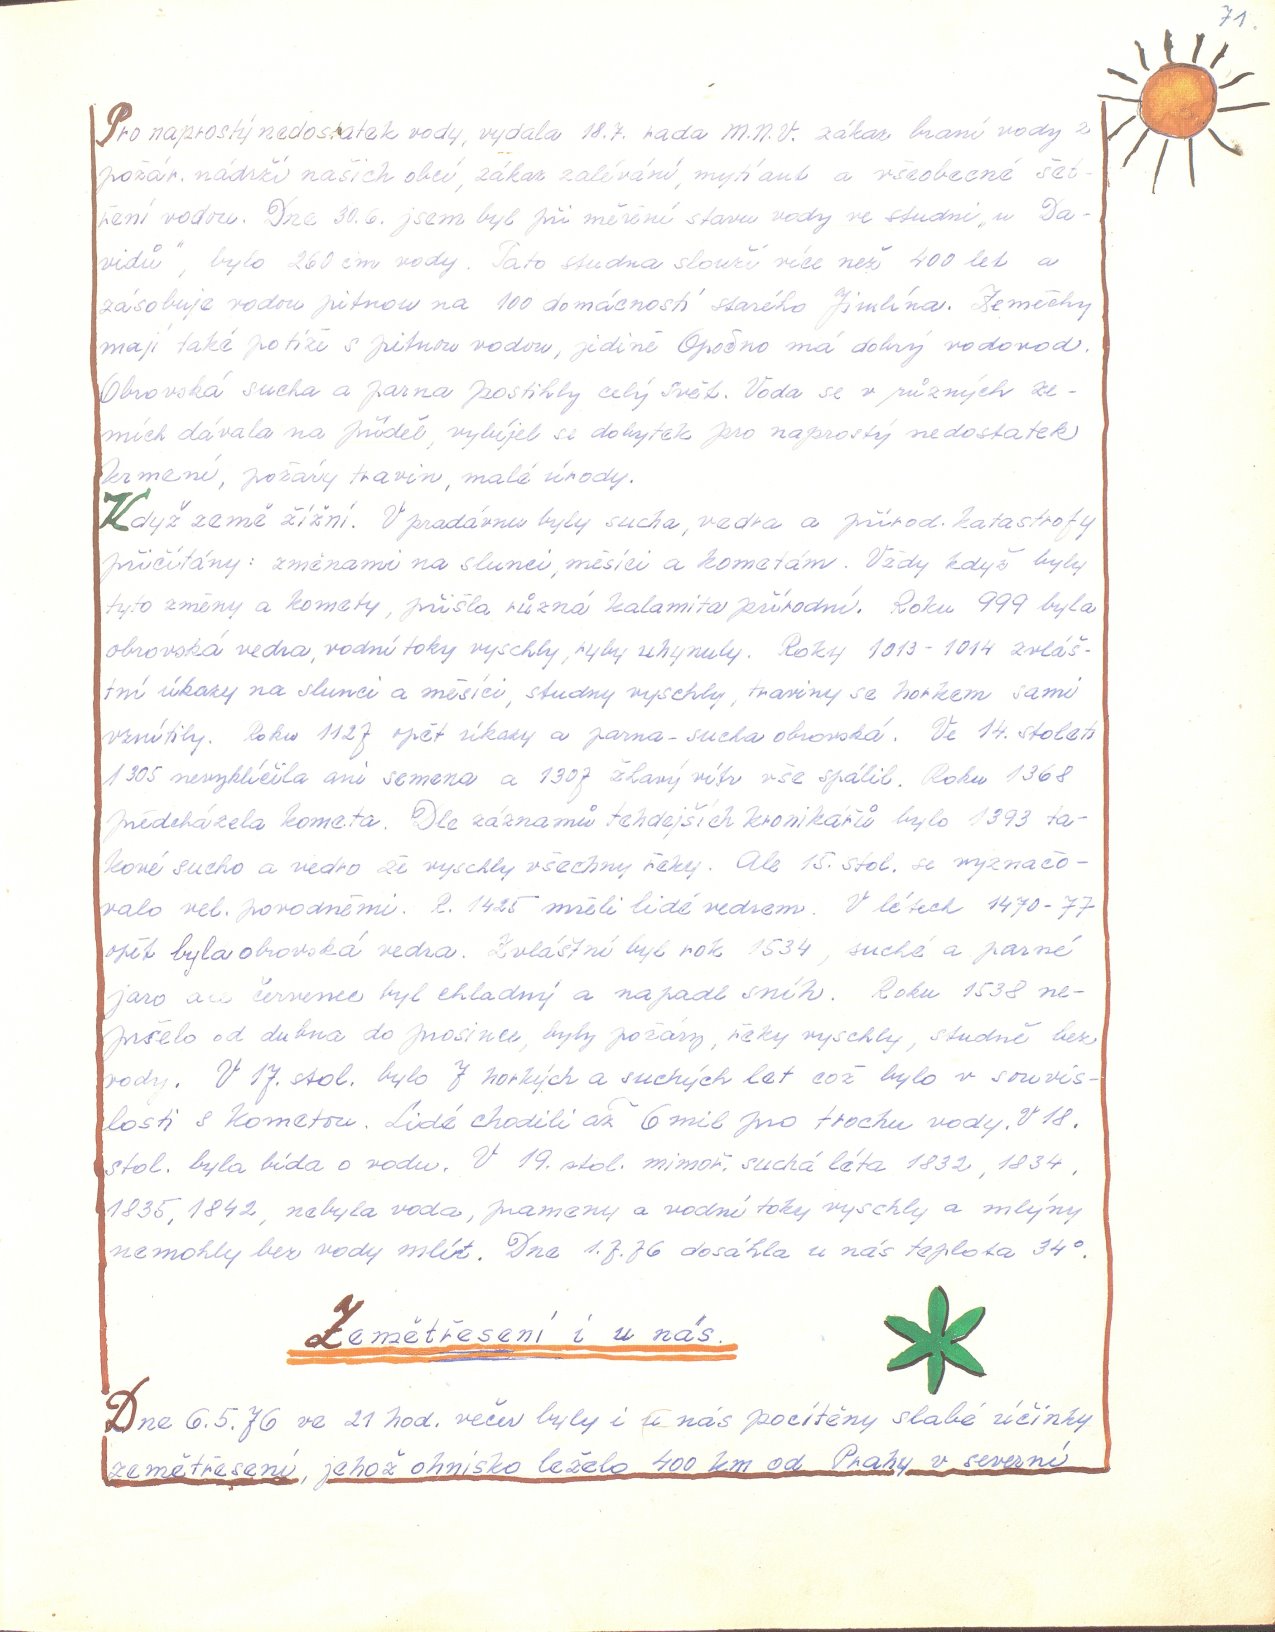 71.
Pro naprostý nedostatek vody, vydala 18.7. rada M.N.V. zákaz braní vody z
požár. nádrží našich obcí, zákaz zalévání, mytí aut a všeobecné šet-
ření vodou. Dne 30.6. jsem byl při měření stavu vody ve studni „u Da-
vidů", bylo 260 cm vody. Tato studna slouží více než 400 let a
zásobuje vodou pitnou na 100 domácností starého Jimlína. Zeměchy
mají také potíže s pitnou vodou, jedině Opočno má dobrý vodovod.
Obrovská sucha a parna postihly celý svět. Voda se v různých ze-
mích dávala na příděl, vybíjel se dobytek pro naprostý nedostatek
krmení, požáry travin, malé úrody.
Když země žížní. V pradávnu byly sucha, vedra a přírod. katastrofy
přičítány: změnami na slunci, měsíci a kometám. Vždy když byly
tyto změny a komety, přišla různá kalamita přírodní. Roku 999 byla
obrovská vedra, vodní toky vyschly, ryby uhynuly. Roky 1013-1014 zvláš-
tní úkazy na slunci a měsíci, studny vyschly, traviny se horkem sami
vznítily. Roku 1127 opět úkazy a parna-sucha obrovská. Ve 14. století
1305 nevyklíčila ani semena a 1307 žhavý vítr vše spálil. Roku 1368
předcházela kometa. Dle záznamů tehdejších kronikářů bylo 1393 ta-
kové sucho a vedro že vyschly všechny řeky. Ale 15. stol. se vyznačo-
valo vel. povodněmi. R. 1425 mřeli lidé vedrem. V létech 1470-77
opět byla obrovská vedra. Zvláštní byl rok 1534, suché a parné
jaro ale červenec byl chladný a napadl sníh. Roku 1538 ne-
pršelo od dubna do prosince, byly požáry, řeky vyschly, studně bez
vody. V 17. stol. bylo 7 horkých a suchých let což bylo v souvis-
losti s kometou. Lidé chodili až 6 mil pro trochu vody. V 18.
stol. byla bída o vodu. V 19. stol. mimoř. suchá léta 1832, 1834,
1835, 1842, nebyla voda, prameny a vodní toky vyschly a mlýny
nemohly bez vody mlít. Dne 1.7.76 dosáhla u nás teplota 34°.
Zemětřesení i u nás.
Dne 6.5.76 ve 21 hod. večer byly i u nás pocítěny slabé účinky
zemětřesení, jehož ohnisko leželo 400 km od Prahy v severní